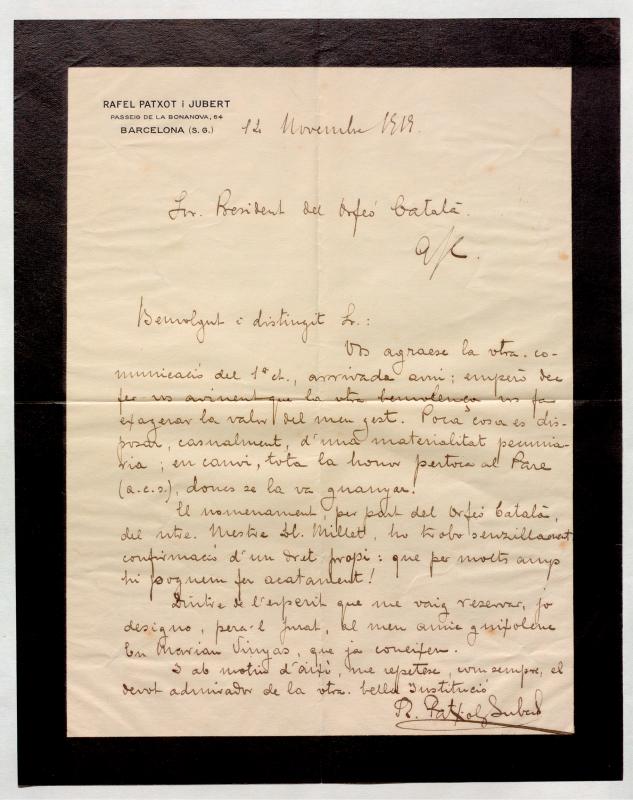 RAFEL PATXOT i JUBERT
PASSEIG DE LA BONANOVA, 64
BARCELONA (S. G.)
12 Novembre 1919.
Sr. President del Orfeó Català.
Benvolgut i distingit Sr.:
Vos agraesc la vtra. co-
municació del 1er ct., arrivada avui; emperò dec
fer-vos avinent que la vtra benvolença vos fa
exagerar la valor del meu gest. Poca cosa es dis-
posar, casualment, d'una materialitat pecunia-
ria; en canvi, tota la honor pertoca al Pare
(a.c.s.), doncs se la va guanyar.
El nomenament, per part del Orfeó Català,
del ntre. Mestre Ll. Millet, ho trobo senzillament
confirmació d'un dret propi: que per molts anys
hi poguem fer acatament!
Dintre de l'esperit que me vaig reservar, jo
designo, pera'l Jurat, al meu amic guixolenc
En Marian Vinyas, que ja coneixen.
I ab motiu d'això, me repetesc, com sempre, el
devot admirador de la vtra. bella Institució
R. Patxot i Jubert